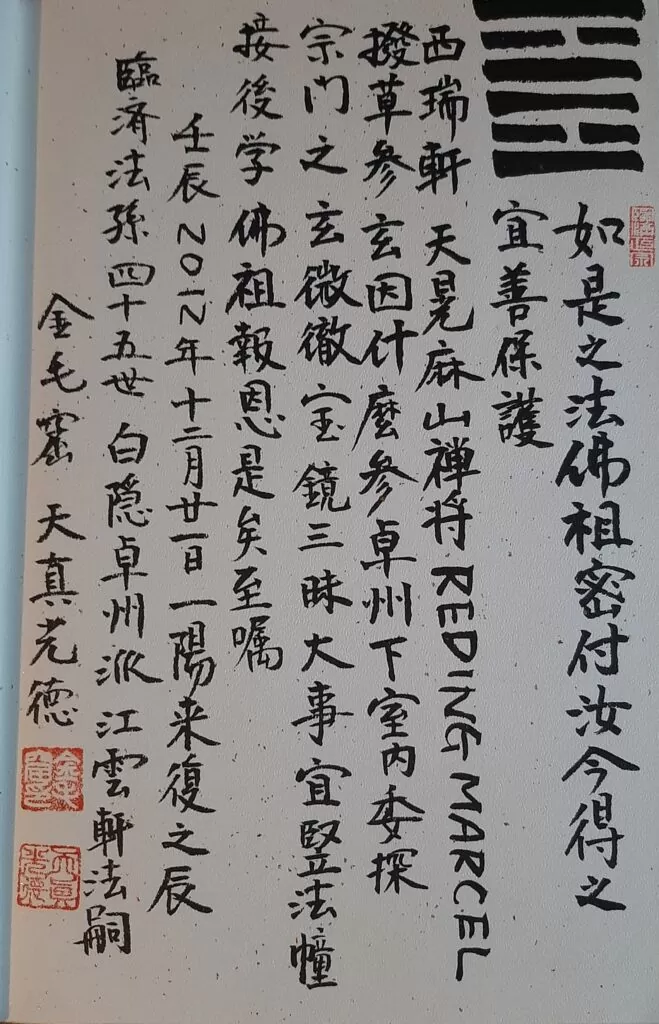 如是之法佛祖密付汝今得之
宜善保護
西瑞軒 天晃麻山禅将 REDING MARCEL
撥草参玄因什麼参卓州下室内委探
宗門之玄微徹宝鏡三昧大事宜竪法幢
接後学佛祖報恩是矣至嘱
壬辰2012年十二月廿一日一陽来復之辰
臨済法孫四十五世 白隐卓州派江雲軒法嗣
金毛窟 天真光徳